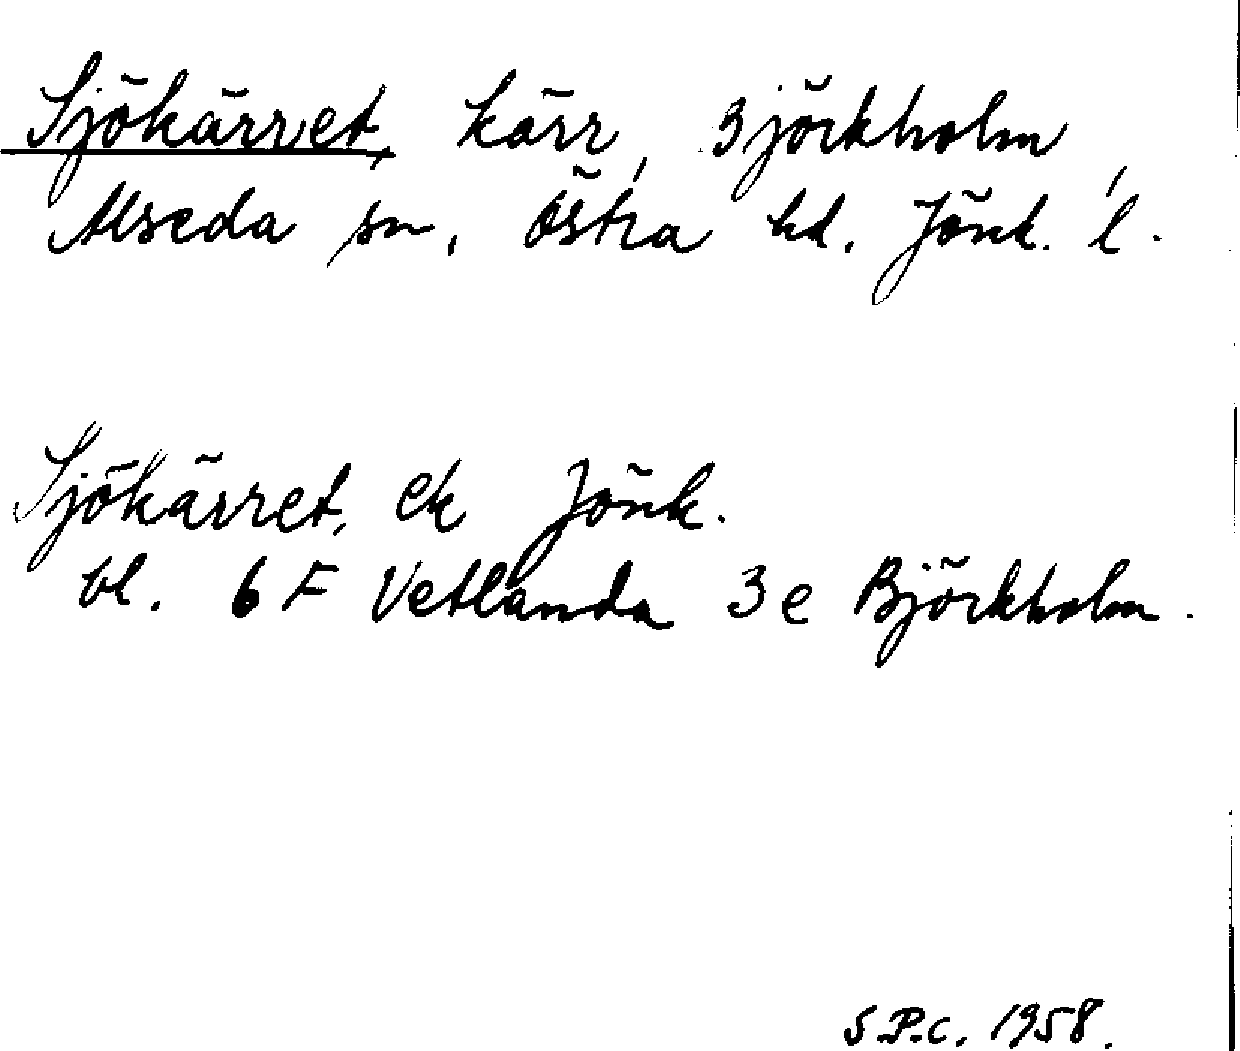 Sjökärret, kärr, Björkholm,
Alseda sn, Östra hd. Jönk. l.
Sjökärret, ek Jönk.
bl. 6 F Vetlanda 3 e Björkholm.
S.P.C. 1958.